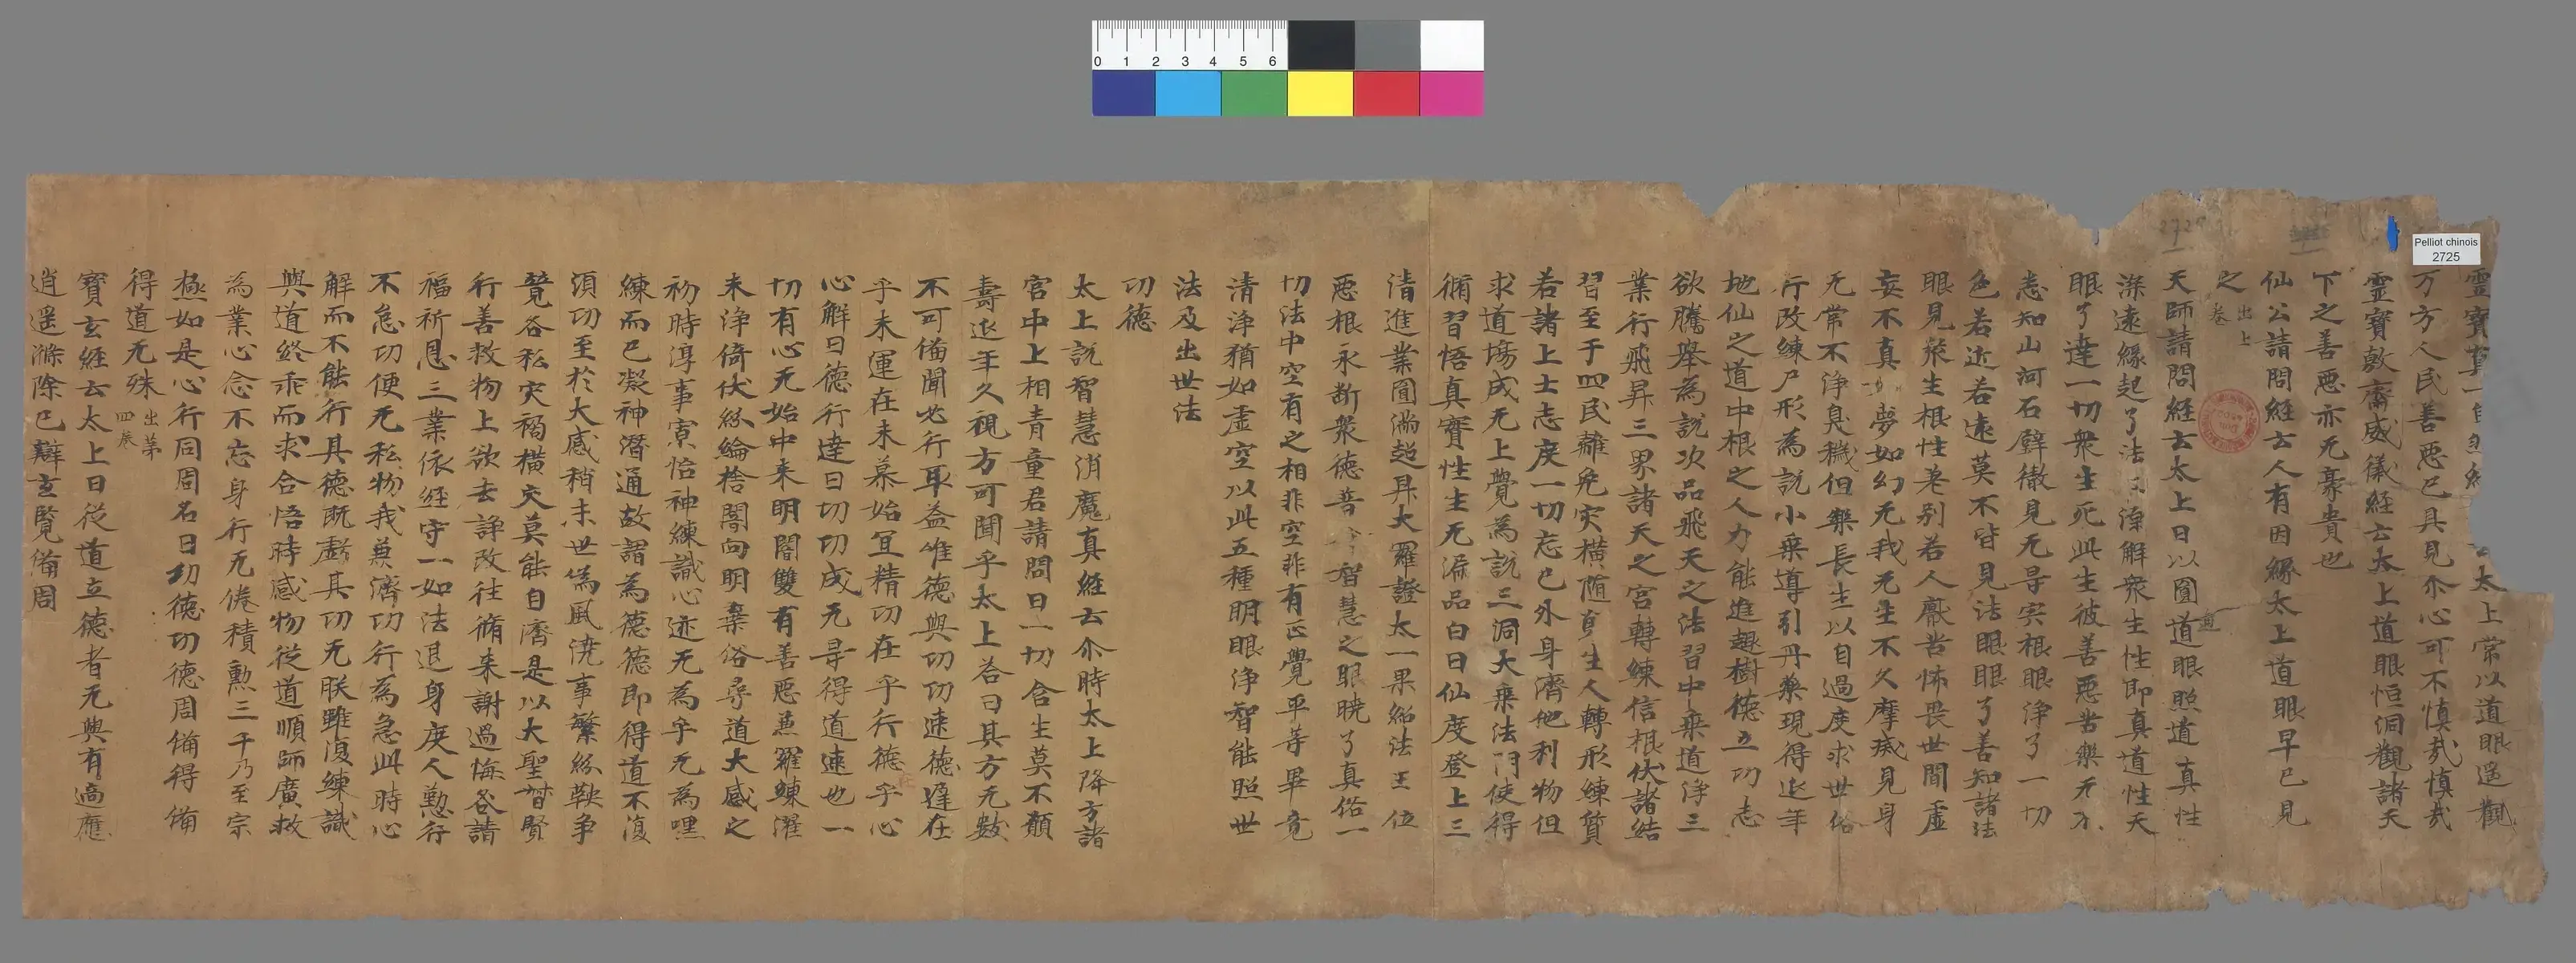 靈寶真一自
太上常以道眼遥觀
万方人民善惡已具見尒心可不慎哉慎哉
靈寶敷齋威儀經云太上道眼恒洞觀諸天
下之善惡亦无豪貴也
仙公請問經云人有因緣太上道眼早已見
之 出上卷
天師請問經云太上曰以圓道眼照道真性
深遠緣起了法深解衆生性即真道性天
眼了達一切衆生死此生彼善惡苦樂无不
悉知山河石壁徹見无㝵宍根眼淨了一切
色若近若遠莫不皆見法眼眼了善知諸法
眼見衆生根性差别若人猒苦怖畏世間虚
妄不真如夢如幻无我无生不久摩滅見身
无常不淨臭穢但樂長生以自過度求世俗
行改練尸形為説小乘導引丹藥現得延年
地仙之道中根之人力能進趣樹德立功志
欲騰舉為説次品飛天之法習中乘道淨三
業行飛昇三界諸天之宫轉練信根伏諸結
習至于四民離免灾横随
生人轉形練質
若諸上士志度一切忘己外身濟他利物但
求道場成无上覺為説三洞大乘法門使得
脩習悟真實性生无漏品白日仙度登上三
清進業圓滿超昇大羅證太一果紹法王位
惡根永断衆德
智慧之眼曉了真俗一
切法中空有之相非空非有正覺平等畢竟
清淨猶如虚空以此五種明眼淨智能照世
法及出世法
功德
太上説智慧消魔真經云尒時太上降方諸
宫中上相青童君請問曰一切含生莫不願
壽延年久視方可聞乎太上荅曰其方无數
不可備聞必行取益唯德與功功速德達在
乎未運在未慕始冝精功在乎行德乎心
心解曰德行達曰功功成无㝵得道速也一
切有心无始中来明闇雙有善惡熏羅練濯
未淨倚伏紛綸捨闇向明棄俗尋道大感之
初時淳事㝡怡神練識心迹无為乎无為嘿
練而已凝神潛通故謂為德德即得道不復
須功至於大感稍末世為風澆事繁紛鞅争
競各私灾禍横夾莫能自濟是以大聖㫺賢
行善救物上欲去誶改往脩来謝過悔咎請
福祈恩三業依經守一如法退身度人懃行
不怠功便无私物我兼濟功行為急此時心
解而不能行其德既虧其功无朕雖復練識
與道終乖而求合悟時感物從道順師廣救
為業心念不忘身行无倦積勲三千乃至宗
極如是心行同周名曰功德功德周備得備
得道无殊 出第四卷
寶玄經云太上曰從道立德者无與有適應
逍遥滌除已辯玄覽備周
Pelliot chinois
2725
0 1 2 3 4 5 6